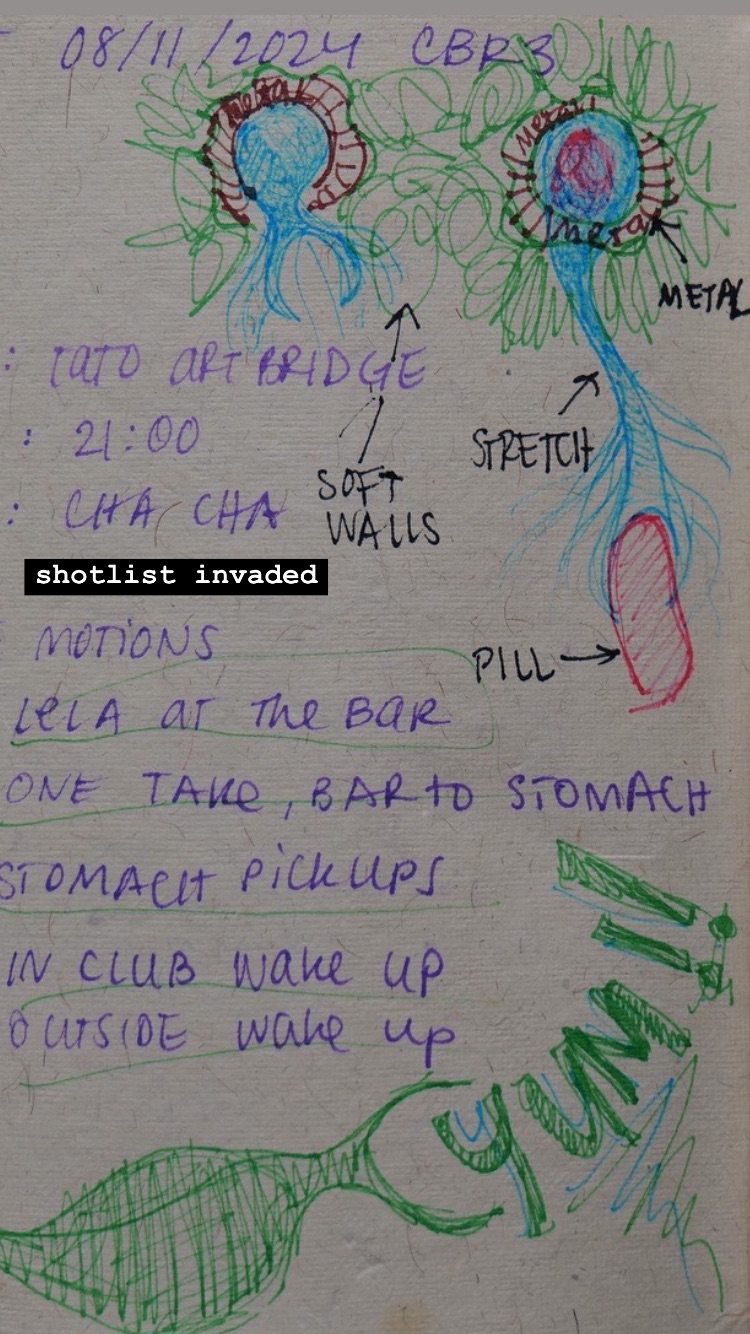 08/11/2024 CBR3
Metal
Metal
Metal
METAL
: TATO ART BRIDGE
: 21:00
STRETCH
: CHA CHA
SOFT
WALLS
shotlist invaded
MOTIONS
PILL
LELA AT The BAR
ONE TAKe, BAR to STOMACH
STOMACH PICKUPS
IN CLUB wake up
OUTSIDE wake up
yum!!